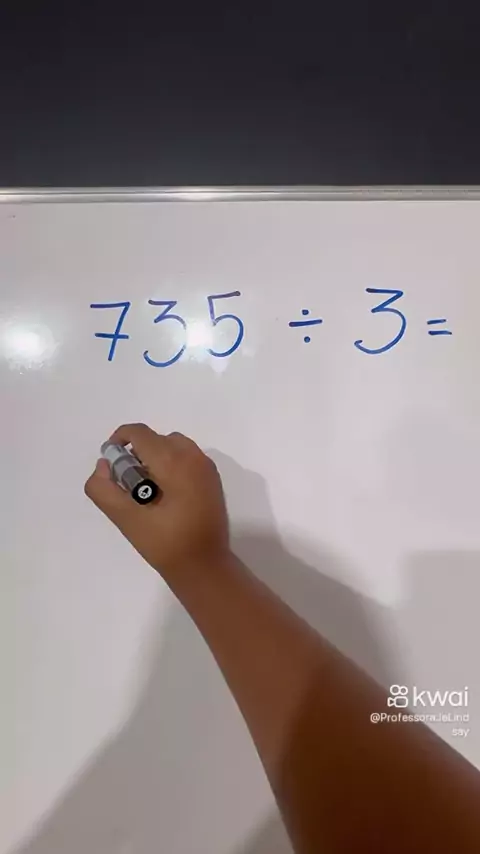 735 ÷ 3 =
kwai
@ProfessoraJeLind
say